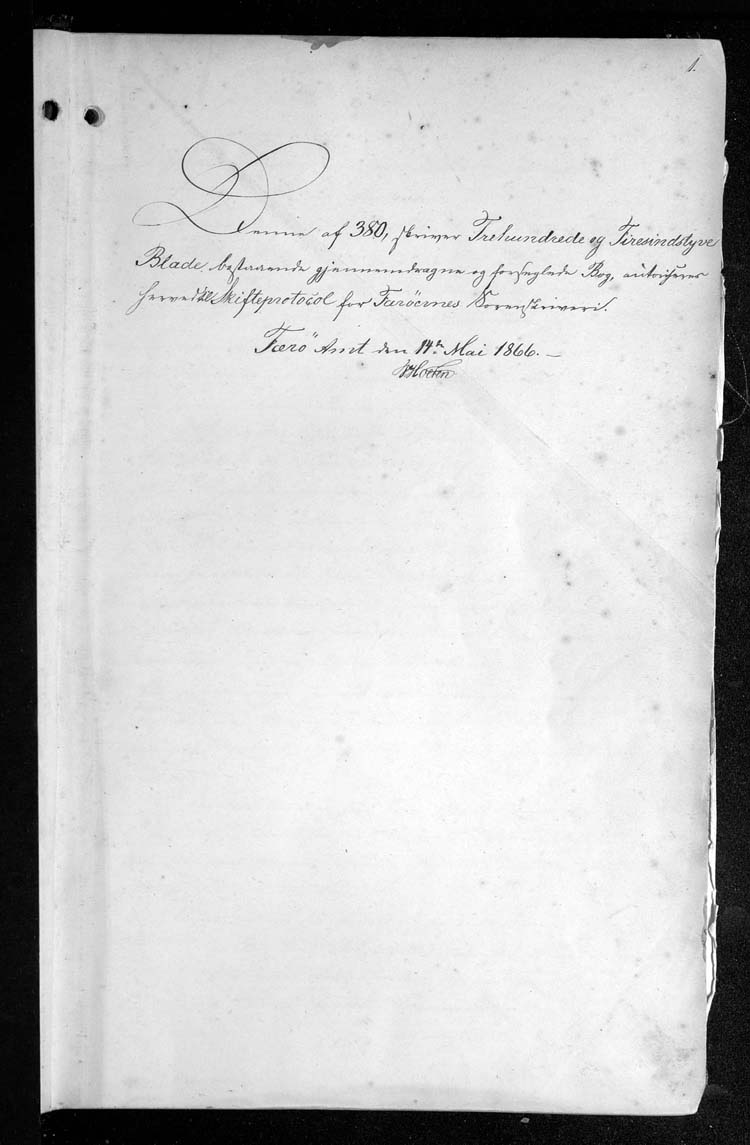 1.
Denne af 380, skriver Trehundrede og Firesindstyve
Blade, bestaaende gjennemdragne og forseglede Bog, autoriseres
herved til Skifteprotocol for Færöernes Sorenskriveri.
Færö Amt den 14de Mai 1866. —